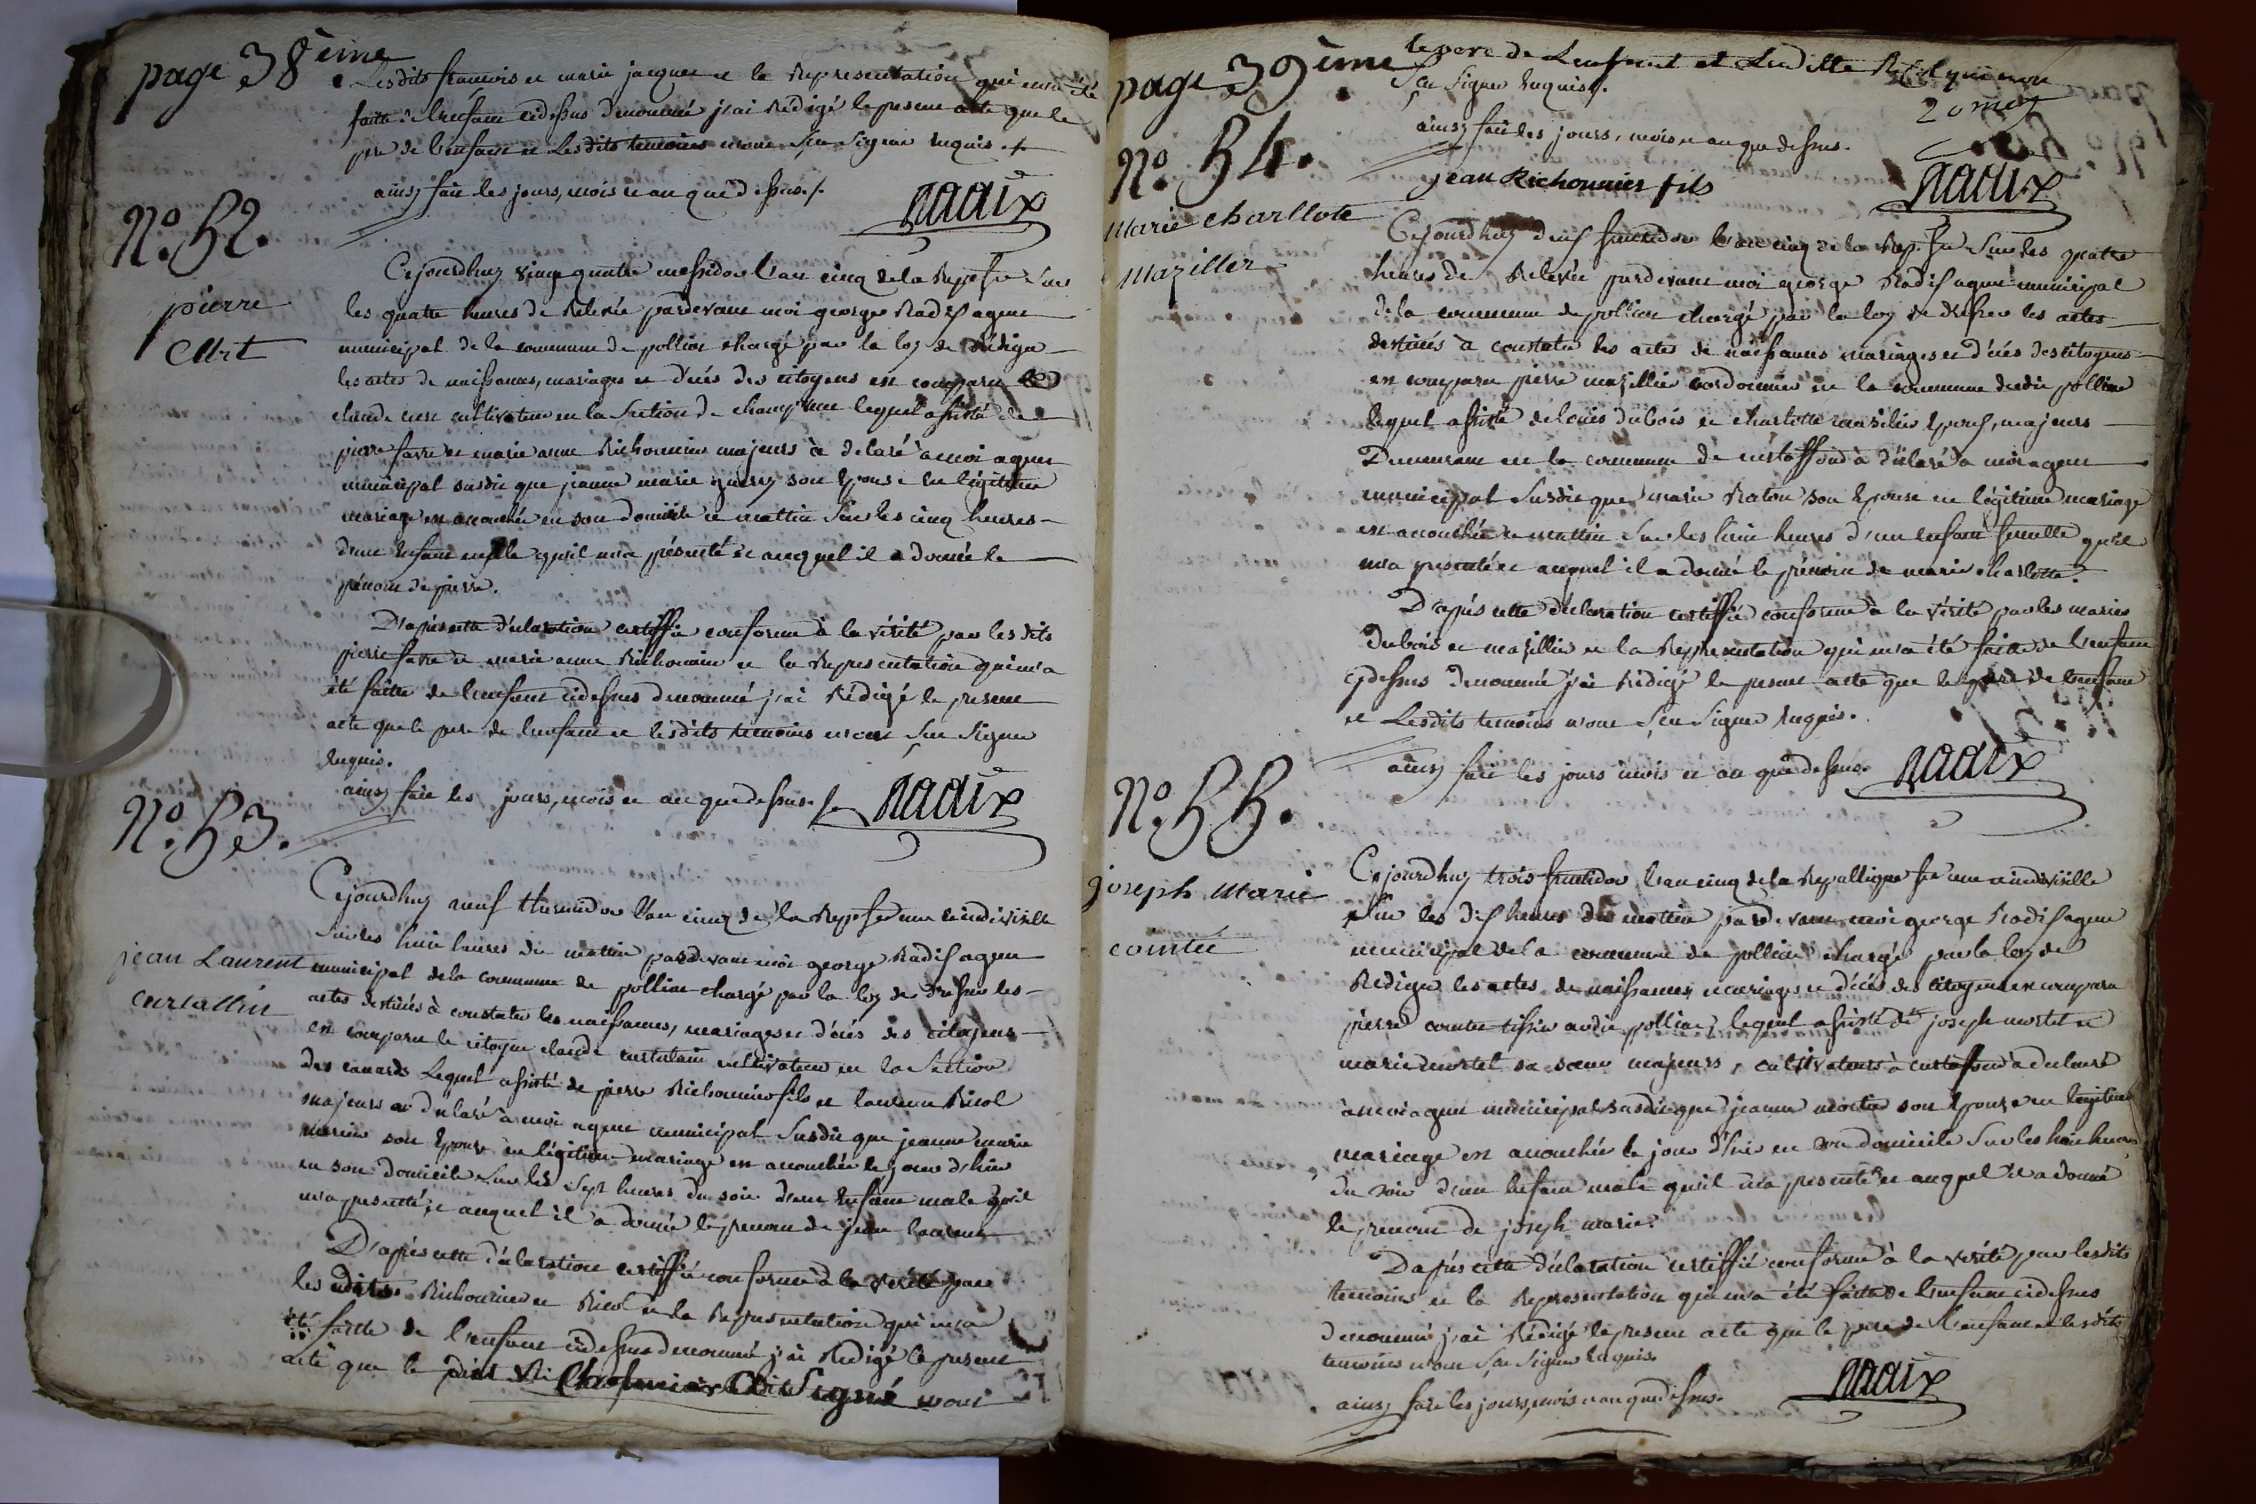 page 38ème
Lesdits francois et marie jacquet et la Representation qui m'a été
faitte de l'enfant cidessus denommé j'ai Redigé le present acte que le
pere de l'enfant et Lesdits temoins n'ont sçu signer requis ./.
ainsy fait les jours, mois et an que dessus ./.
Radix
N°. 52.
pierre
Cejourdhuy vingt quatre messidor l'an cinq de la Rep. fse sur
les quatre heures de Relevée pardevant moi george Radix agent
municipal de la commune de pollian chargé par la loy de Rédiger
les actes de naissances, mariages et décés des citoyens est comparu
claude cultivateur en la Section de lequel assisté de
pierre favre et marie anne Richonnier majeurs à declaré à moi agent
municipal susdit que jeanne marie son Epouse en légitime
mariage est accouchée en son domicile ce mattin sur les cinq heures
d'un Enfant male qu'il m'a présenté et auquel il a donné le
prénom de pierre.
D'aprés cette déclaration certiffié conforme à la vérité par les dits
pierre favre et marie anne Richonnier et la Representation qui m'a
été faitte de l'enfant cidessus denommé j'ai Rédigé le present
acte que le pere de l'enfant et lesdits temoins n'ont sçu signer
Requis.
ainsy fait les jours, mois et an que dessus ./.
Radix
N°. 53.
jean Laurent
curtallin
Cejourdhuy neuf thermidor l'an cinq de la Rep. fse une et indivisible
sur les huit heures du mattin pardevant moi george Radix agent
municipal de la commune de pollian chargé par la loy de dresser les
actes destinés à constater les naissances, mariages et décés des citoyens
est comparu le citoyen claude curtalain cultivateur en la Section
des canards Lequel assisté de pierre Richonnier fils et laurence Ricol
majeurs a declaré à moi agent municipal Susdit que jeanne marie
son Epouse en légitime mariage est accouchée le jour d'hier
en son domicile sur les Sept heures du soir d'un Enfant male qu'il
m'a presenté, et auquel il a donné le prenom de jean laurent
D'aprés cette déclaration certiffié conforme à la vérité par
les dits Richonnier et Ricol et la Representation qui m'a
été faitte de l'enfant cidessus denommé j'ai Redigé le present
acte que le dit Richonnier a Signé non
page 39ème
le pere de L'enfant et Laditte Ricol qui n'ont
Sçu Signer requis ./.
ainsy fait les jours, mois et an que dessus.
jean Richonnier fils
Radix
N°. 54.
Marie Charllote
Maziller
Cejourdhuy deux fructidor l'an cinq de la Rep. fse Sur les quatre
heures de Relevée pardevant moi george Radix agent municipal
de la commune de pollian chargé par la loy de dresser les actes
destinés à constater les actes de naissances mariages et décés des citoyens
est comparu pierre mazillier cordonnier en la commune dudit pollian
lequel assisté de louis dubois et charlotte mazilier Epoux, majeurs
Demeurant en la commune de curtaffond à déclaré à moi agent
municipal Susdit que marie Raton son Epouse en légitime mariage
est accouchée ce mattin Sur les huit heures d'un enfant femelle qu'il
m'a presenté et auquel il a donné le prénom de marie charlotte.
D'aprés cette déclaration certiffié conforme à la vérité par les mariés
Dubois et mazillier et la Representation qui m'a été faitte de l'enfant
cydessus denommé j'ai Rédigé le present acte que le pere de l'enfant
et Lesdits temoins n'ont Sçu Signer Requis.
ainsy fait les jours mois et an que dessus.
Radix
N°. 55.
joseph Marie
comtet
Cejourdhuy trois fructidor l'an cinq de la Republlique fse une et indivisible
Sur les dix heures du mattin pardevant moi george Radix agent
municipal de la commune de pollian chargé par la loy de
Rediger les actes de naissances, mariages et décés des citoyens est comparu
pierre comtet tissier audit pollian, lequel assisté de joseph mortel et
marie mortel sa soeur majeurs, cultivateurs à curtaffond a declaré
à moi agent municipal susdit que jeanne mortel son Epouse en légitime
mariage est accouchée le jour d'hier en son domicile Sur les huit heures
du soir d'un Enfant male qu'il m'a presenté et auquel il a donné
le prenom de joseph marie.
D'aprés cette déclaration certiffié conforme à la vérité par lesdits
temoins et la Representation qui m'a été faitte de l'enfant cidessus
denommé j'ai Rédigé le present acte que le pere de l'enfant et lesdits
temoins n'ont Sçu Signer Requis.
ainsy fait les jours, mois et an que dessus.
Radix